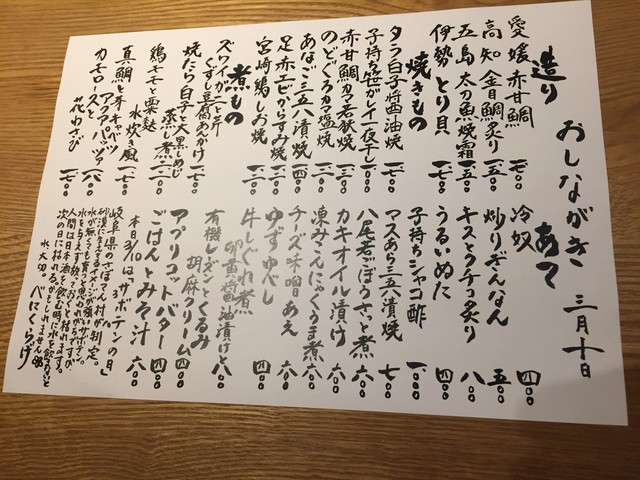 おしながき 三月十日
造り
愛媛 赤甘鯛 一、七〇〇
高知 金目鯛炙り 一、五〇〇
五島 太刀魚焼霜 一、五〇〇
伊勢 とり貝 一、七〇〇
焼きもの
タラ白子醤油焼 一、七〇〇
子持ち笹がレイ一夜干し
赤甘鯛カマ若狭焼
のどぐろカマ塩焼
あなご三五八漬焼
足赤エビからすみ焼
宮崎鶏しお焼
煮もの
ズワイガニと芹
くずし豆腐あんかけ
焼たら白子と大黒しめじ
蒸し煮
鶏モモと粟麩
水炊き風
真鯛と芽キャベツ
アクアパッツァ
カモロースと
花わさび
あて
冷奴 四〇〇
炒りぎんなん 五〇〇
キスとウチコ炙り 八〇〇
うるいぬた 四〇〇
子持ちシャコ酢
マスあら三五八漬焼 七〇〇
八尾若ごぼうさっと煮 六〇〇
カキオイル漬け 六〇〇
凍みこんにゃくうま煮 六〇〇
チーズ味噌あえ 六〇〇
ゆずゆべし 四〇〇
牛しぐれ煮
卵黄醤油漬けと 八〇〇
有機レーズンとくるみ
胡麻クリーム 四〇〇
アプリコットバター 四〇〇
ごはんとみそ汁 六〇〇
本日3/10は「サボテンの日」
岐阜県のさぼてん村が制定。
水大切。べにくらげ